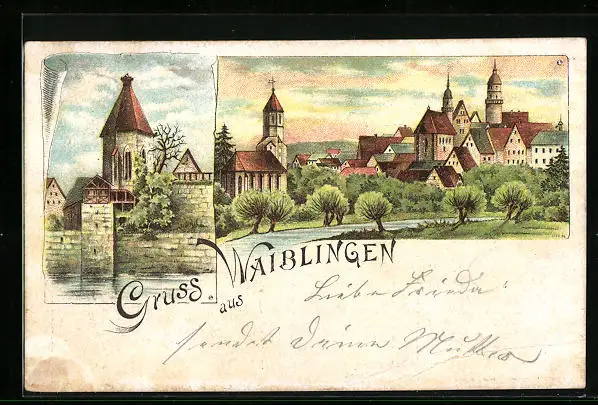 Gruss
aus
WAIBLINGEN
Liebe Frieda!
sendet Deine Mutter